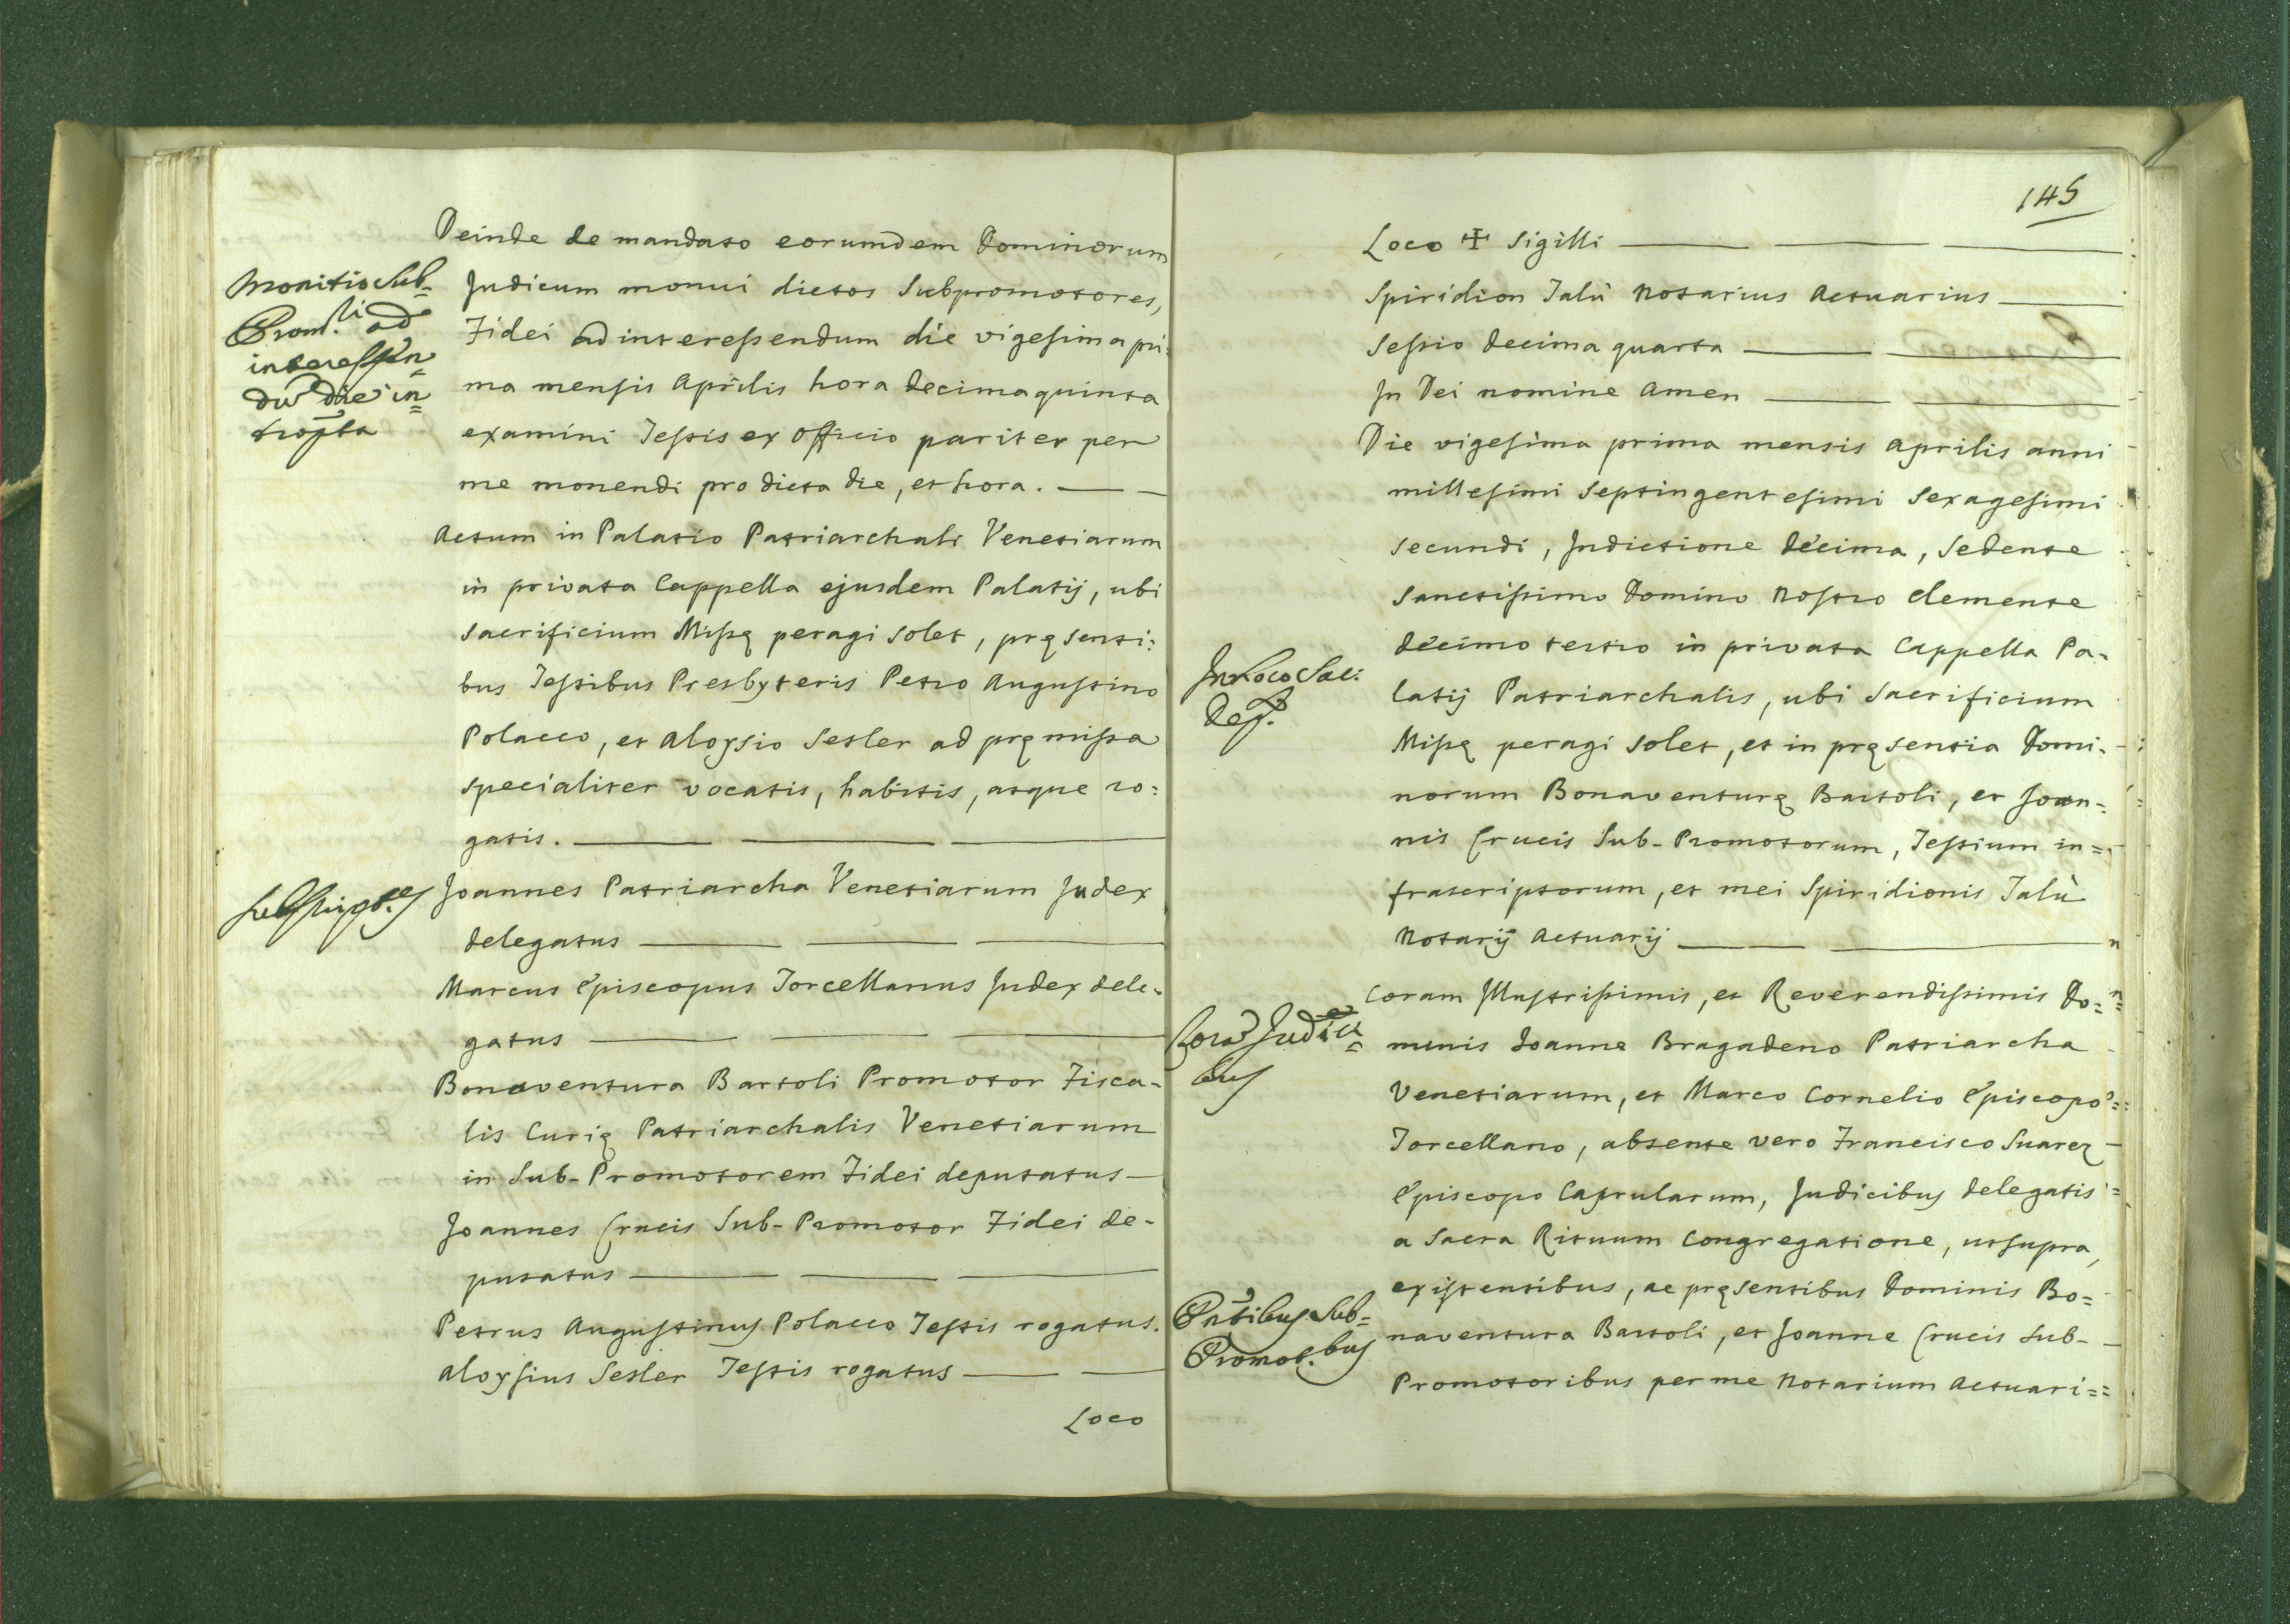 Deinde de mandato eorumdem Dominorum
Monitio Sub=
Judicum monui dictos Subpromotores,
Prom.li ad
Fidei ad interessendum die vigesima pri:
interessen=
ma mensis Aprilis hora decimaquinta
dũ die in=
examini Testis ex officio pariter per
me monendi pro dicta die, et hora. — —
Actum in Palatio Patriarchali Venetiarum
in privata Cappella ejusdem Palatij, ubi
Sacrificium Missę peragi solet, pręsenti:
bus Testibus Presbyteris Petro Augustino
Polacco, et Aloysio Sesler ad pręmissa
specialiter vocatis, habitis, atque ro:
gatis. — — —
Joannes Patriarcha Venetiarum Judex
delegatus — — —
Marcus Episcopus Torcellanus Judex dele-
gatus — — —
Bonaventura Bartoli Promotor Fisca-
lis Curię Patriarchalis Venetiarum
in Sub-Promotorem Fidei deputatus —
Joannes Crucis Sub-Promotor Fidei de-
putatus — — —
Petrus Augustinus Polacco Testis rogatus.
Aloysius Sesler Testis rogatus — —
Loco
145
Loco ✠ Sigilli — — —
Spiridion Talù Notarius Actuarius —
Sessio decima quarta — —
In Dei nomine Amen — —
Die vigesima prima mensis Aprilis anni
millesimi Septingentesimi Sexagesimi
secundi, Indictione decima, Sedente
Sanctissimo Domino Nostro Clemente
decimo tertio in privata Cappella Pa-
In Loco Sac:
latij Patriarchalis, ubi Sacrificium
Dep.
Missę peragi solet, et in pręsentia Domi-
norum Bonaventurę Bartoli, et Joan=
nis Crucis Sub-Promotorum, Testium in=
frascriptorum, et mei Spiridionis Talù
Notarij Actuarij — —
Coram Illustrissimis, et Reverendissimis Do=
Corã Judici=
minis Joanne Bragadeno Patriarcha
bus
Venetiarum, et Marco Cornelio Episcopo
Torcellano, absente vero Francisco Suarez
Episcopo Caprularum, Judicibus delegatis
a Sacra Rituum Congregatione, ut supra,
existentibus, ac pręsentibus Dominis Bo=
Pñtibus Sub=
naventura Bartoli, et Joanne Crucis Sub-
Promot.bus
Promotoribus per me Notarium Actuari=